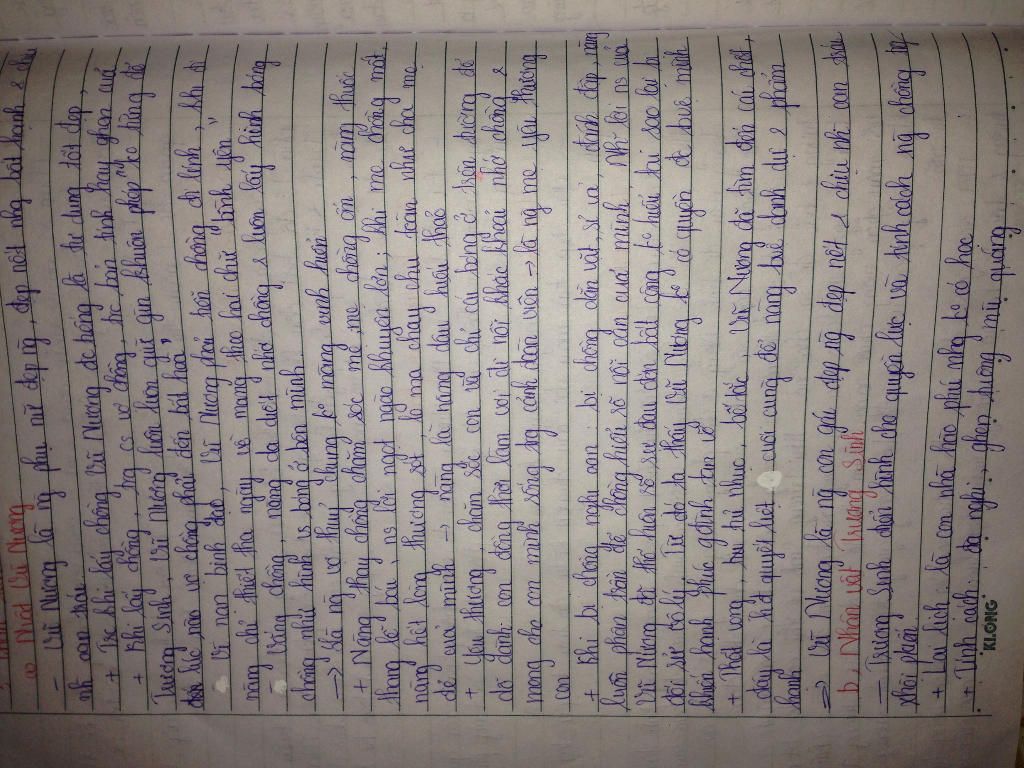 a, Nhật Vũ Nương
- Vũ Nương là ng phụ nữ đẹp ng, đẹp nết nhg bất hạnh &
oan trái
+ Tc khi lấy chồng Vũ Nương đc tiếng là tư dung tốt đẹp,
+ Khi lấy chồng, trg cs vợ chồng, tc bản tính hay ghen của
Trương Sinh, Vũ Nương luôn luôn giữ gìn khuôn phép ko từng để
lúc nào vợ chồng phải đến bất hoà
Vì nạn binh đao, Vũ Nương phải tiễn chồng đi lính, khi đi
nàng chỉ thiết tha ngày về mang theo hai chữ "bình yên",
Vắng chồng, nàng da diết nhớ chồng & luôn lấy hình bóng
chồng như hình vs bóng ở bên mình.
=> Là ng vợ thuỷ chung ko màng vinh hiển
+ Nàng thay chồng chăm sóc mẹ chồng ốm, nàng thuốc
thang lễ bái, vs lời ngọt ngào khuyên lơn, khi mẹ chồng mất
nàng hết lòng thương xót, lo ma chay chu toàn như cha mẹ
đẻ của mình -> nàng là nàng dâu hiếu thảo
+ Yêu thương, chăm sóc con và chỉ cái bóng ở trên tường để
dỗ dành con đồng thời làm vơi đi nỗi khắc khoải nhớ chồng &
mong cho con mình sống trg cảnh đoàn viên -> là ng mẹ yêu thương
con
+ Khi bị chồng nghi oan: bị chồng dằn vặt, sỉ vả, đánh đập, nàng
luôn phân trần để chồng hiểu rõ nỗi oan của mình. Nhg lời ns của
Vũ Nương từ thổ hoài rồi sự đau đớn bất công ko hiểu tại sao lại bị
đối sử tồ lý. Từ đó ta thấy Vũ Nương ko có quyền đc bvệ mình
khiến hạnh phúc gđình tan vỡ
+ Thất vọng, bị hủ nhục, bế tắc, Vũ Nương đã tìm đến cái chết,
đây là kết quyết liệt cuối cùng để nàng bvệ danh dự & phẩm
hạnh
=> Vũ Nương là ng con gái đẹp ng đẹp nết & chịu nh` oan trái
b, Nhân vật Trương Sinh
- Trương Sinh đại diện cho quyền lực và tính cách ng chồng trg
xh pkiến
+ Lai lịch: là con nhà hào phú nhg ko có học
+ Tính cách: đa nghi, ghen tuông mù quáng
KLONG